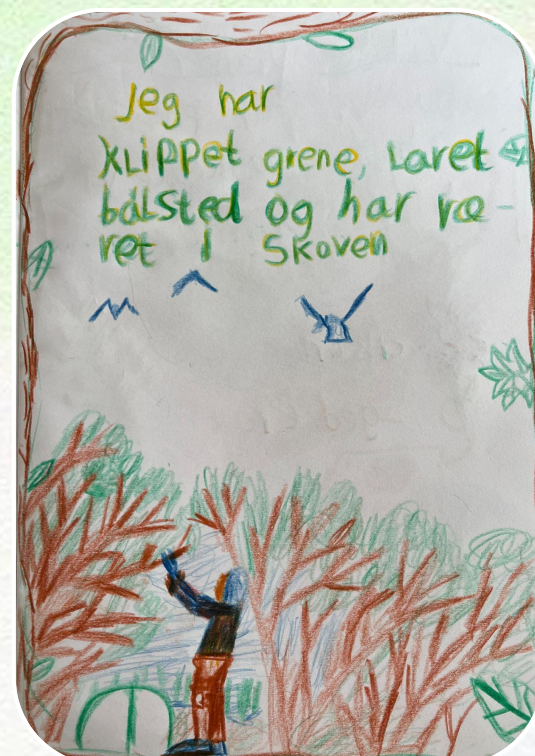 Jeg har
KLiPPet grene, Laret
bålSted og har væ-
ret i Skoven